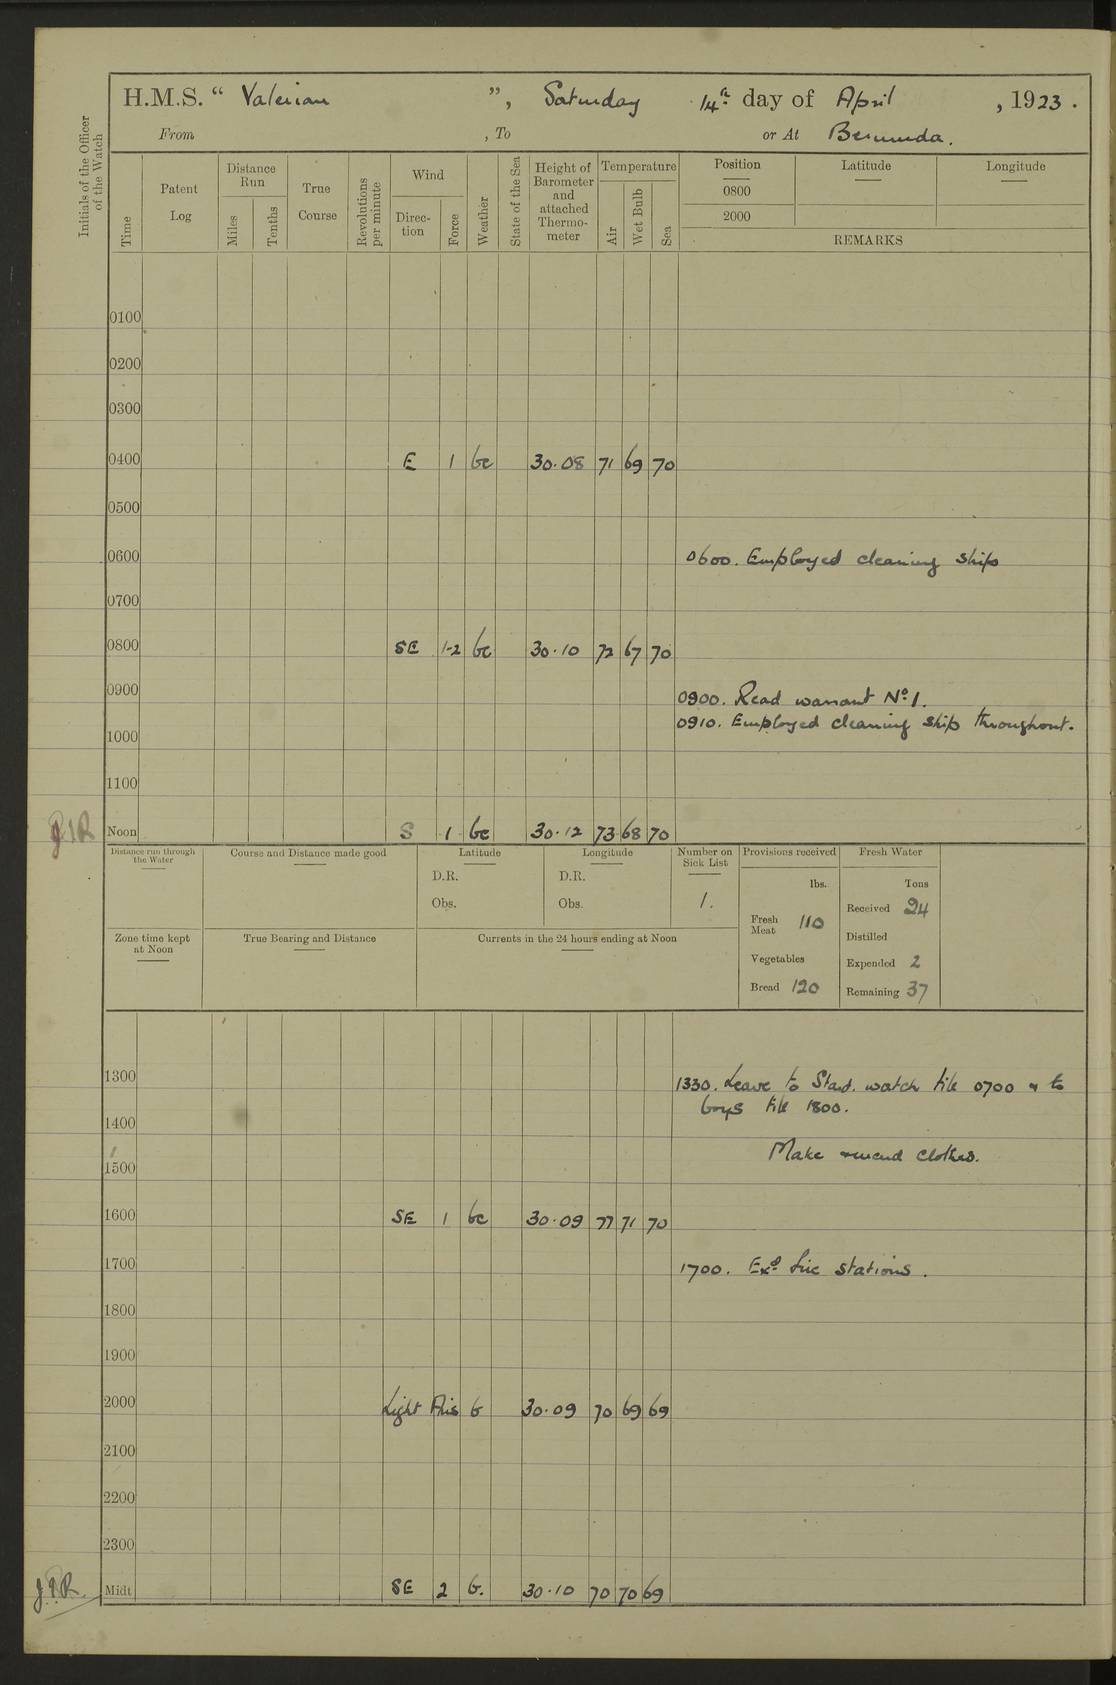 H.M.S. “ Valerian ”, Saturday 14th day of April , 1923 .
From , To or At Bermuda.
Initials of the Officer of the Watch
Time
Patent Log
Distance Run
Miles
Tenths
True Course
Revolutions per minute
Wind
Direc- tion
Force
Weather
State of the Sea
Height of Barometer and attached Thermo- meter
Temperature
Air
Wet Bulb
Sea
Position Latitude Longitude
0800
2000
REMARKS
0100
0200
0300
0400 E 1 bc 30.08 71 69 70
0500
0600 0600. Employed cleaning ship
0700
0800 SE 1-2 bc 30.10 72 67 70
0900 0900. Read warrant No. 1.
0910. Employed cleaning ship throughout.
1000
1100
Noon S 1 bc 30.12 73 68 70
Distance run through the Water
Course and Distance made good
Latitude
D.R.
Obs.
Longitude
D.R.
Obs.
Number on Sick List
1.
Provisions received
lbs.
Fresh Meat 110
Vegetables
Bread 120
Fresh Water
Tons
Received 24
Distilled
Expended 2
Remaining 37
Zone time kept at Noon
True Bearing and Distance
Currents in the 24 hours ending at Noon
1300 1330. Leave to Starbd. watch till 0700 & to
boys till 1800.
1400
Make & mend clothes.
1500
1600 SE 1 bc 30.09 77 71 70
1700 1700. Exd fire stations.
1800
1900
2000 Light Airs b 30.09 70 69 69
2100
2200
2300
J.P.R. Midt SE 2 b. 30.10 70 70 69